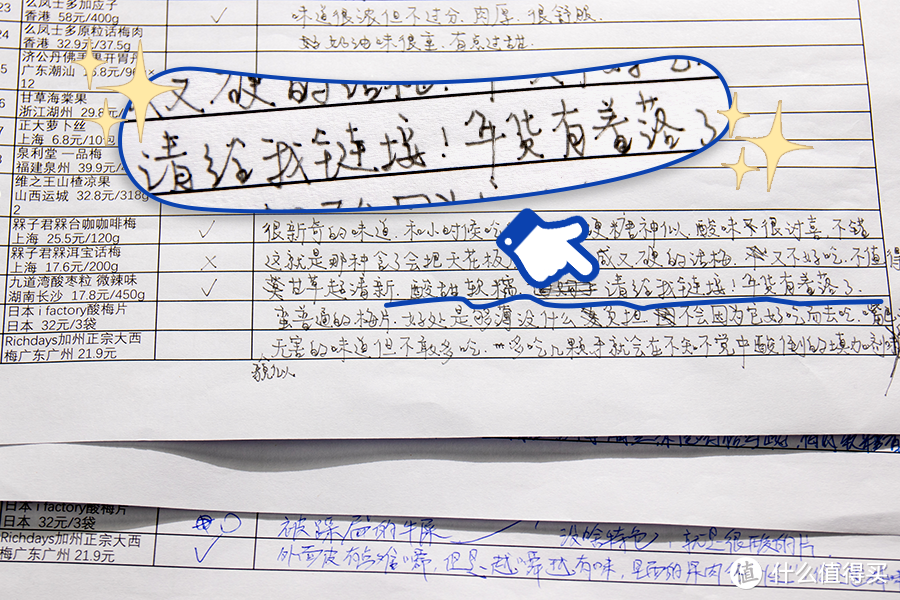 23 么凤士多加应子
香港 58元/400g ✓ 味道很浓但不过分.肉厚.很舒服.
24 么凤士多原粒话梅肉
香港 32.9元/37.5g 好奶油味很重.有点过甜.
济公丹佛手果开胃丹
广东潮汕
12
又硬的
甘草海棠果
浙江湖州 29.8
正大萝卜丝
上海 6.8元/10包
请给我链接!年货有着落了
泉利堂 一品梅
福建泉州 39.9元
维之王山楂凉果
山西运城 32.8元/318g
2
槑子君槑台咖咖啡梅
上海 25.5元/120g ✓ 很新奇的味道.和小时候吃 糖神似.酸味不很讨喜.不错
槑子君槑洱宝话梅
上海 17.6元/200g × 这就是那种食了会把天花板 成又硬的话梅. 又不好吃.不值得
九道湾酸枣粒 微辣味
湖南长沙 17.8元/450g ✓ 甘草超清新.酸甜软糯 请给我链接!年货有着落了.
日本 i factory酸梅片
日本 32元/3袋 蛮普通的梅片.好处是够薄没什么负担. 不会因为它好吃而去吃.
Richdays加州正宗大西
梅广东广州 21.9元 无害的味道但不敢多吃.多吃几颗牙就会在不知不觉中酸倒的
貌似
日本 i factory酸梅片
日本 32元/3袋 被踩扁的牛屎 没啥特色,就是很酸的片.
Richdays加州正宗大西
梅广东广州 21.9元 ✓ 外面皮有些难嚼,但是越嚼越有味,里面的果肉
值 什么值得买